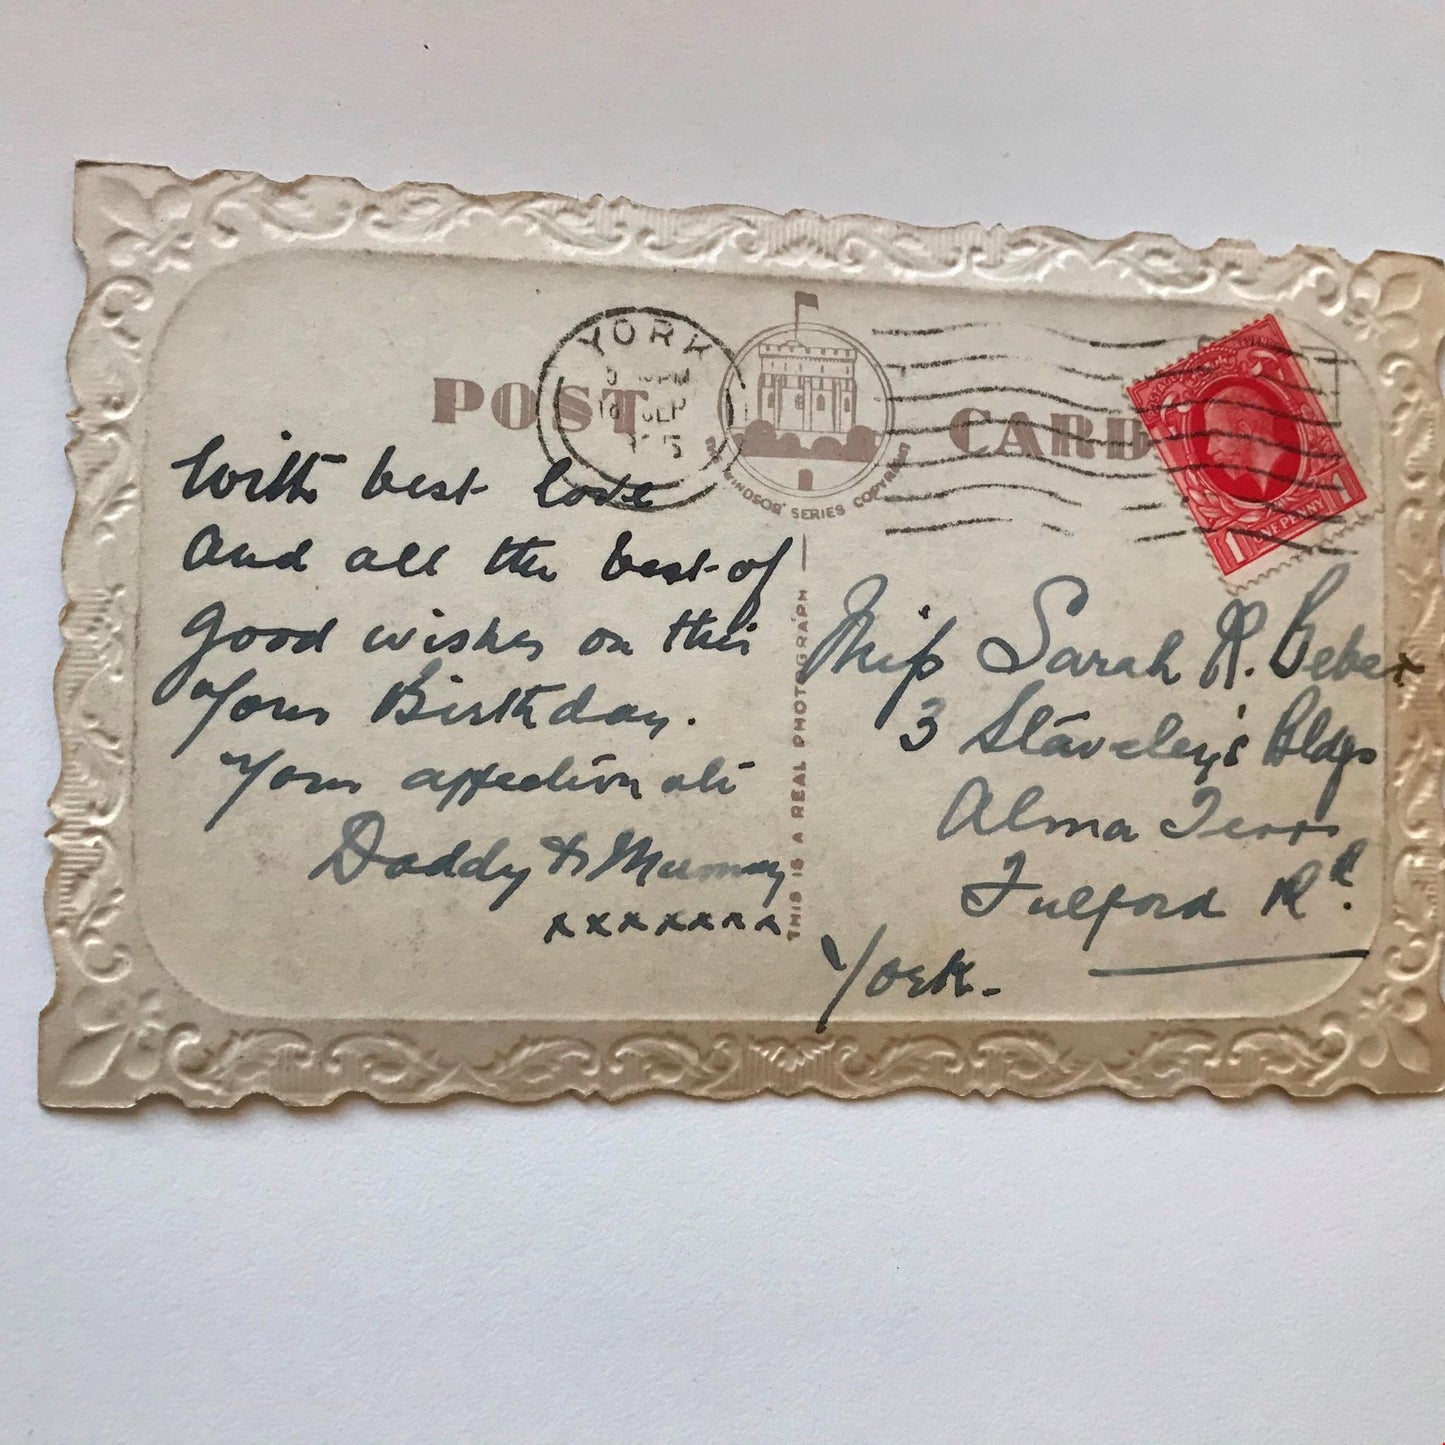 POST CARD
YORK
PM
SEP
"WINDSOR" SERIES COPYRIGHT
ONE PENNY
1 1
With best love
And all the best of
Good wishes on this
Your Birthday.
Your affectionate
Daddy & Mummy
xxxxxxxx
THIS IS A REAL PHOTOGRAPH
Miss Sarah R.
3 Staveley's Bldgs
Alma Terr
Fulford Rd.
York.